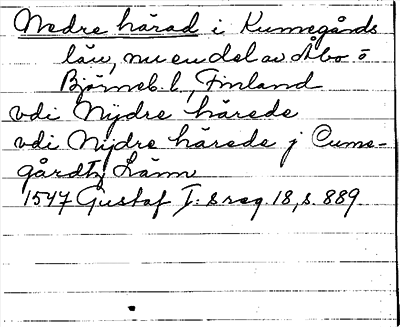 Nedre härad i Kumogårds
län, nu en del av Åbo o
Björneb. l., Finland
vdi Nijdre härede
vdi Nijdre härede j Cumo-
gårdtz Länn
1547 Gustaf I: s reg. 18, s. 889